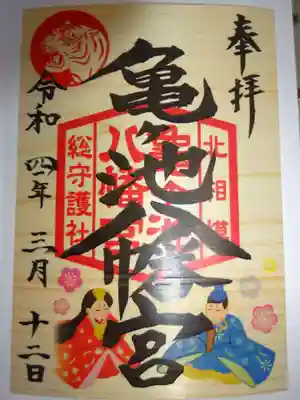 奉拝
北相模
亀ヶ池八幡宮
亀ヶ池
八幡宮
総守護社
令和四年三月十二日